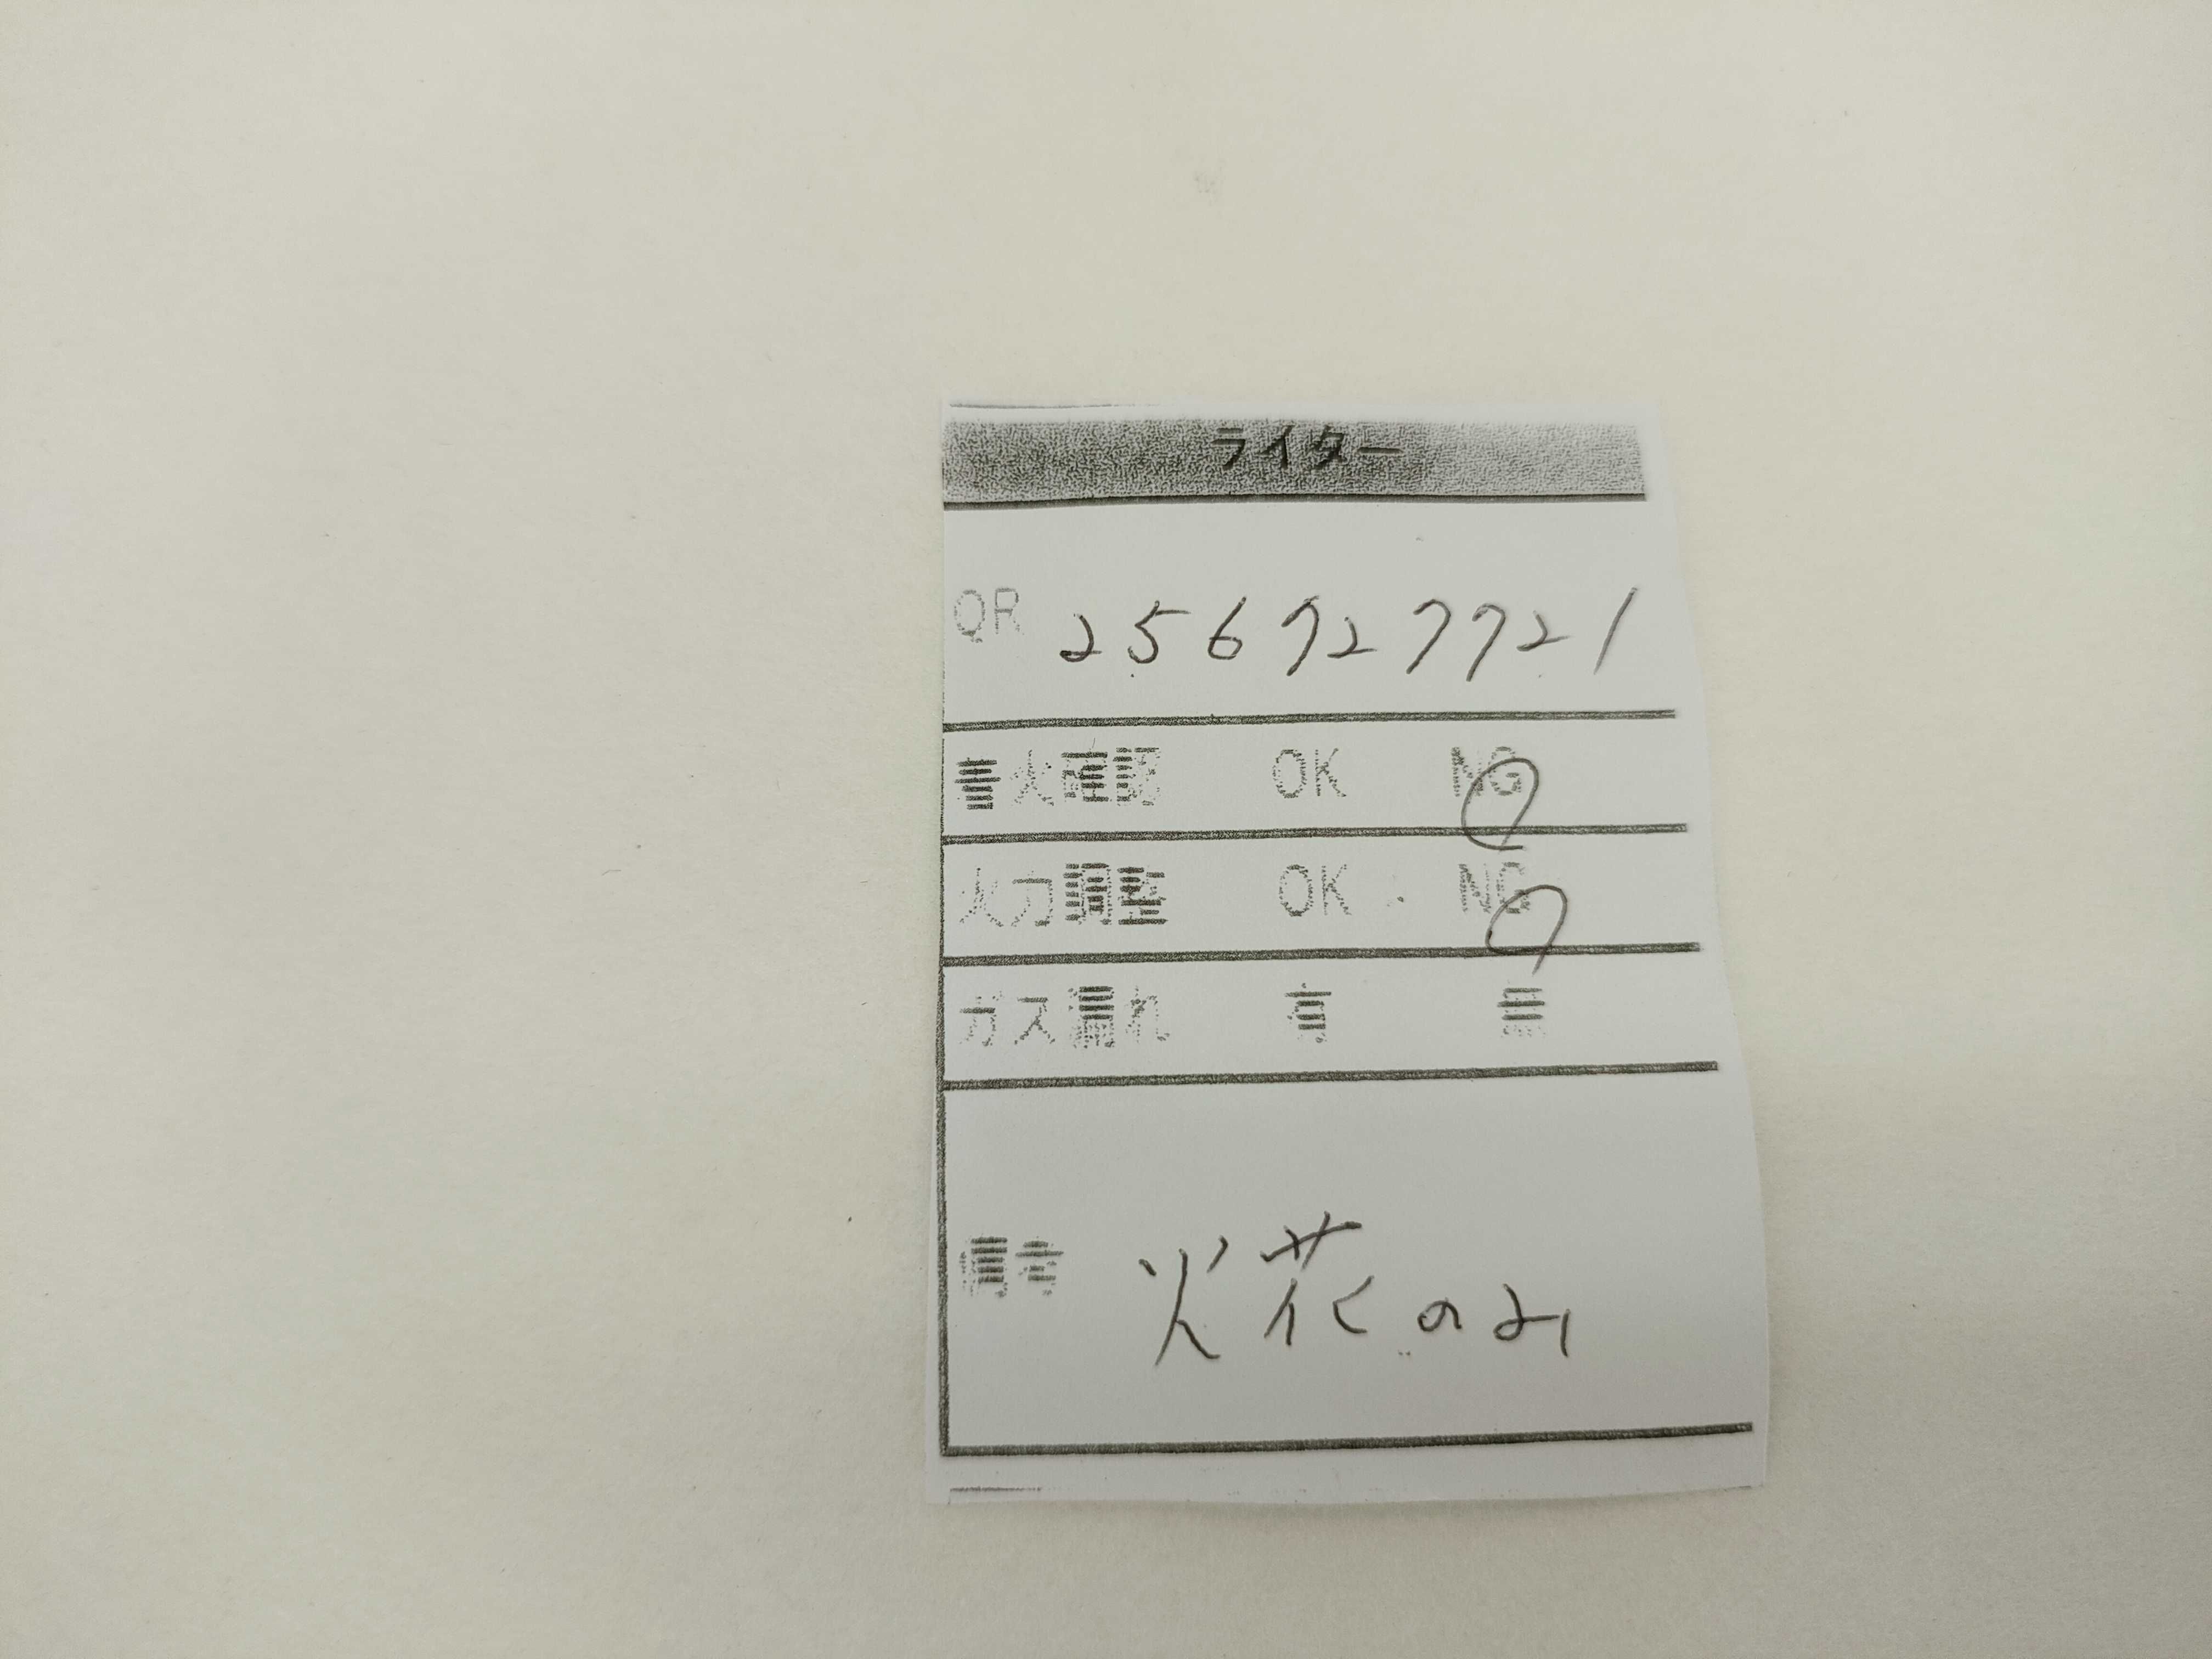 ライター
QR 256727721
着火確認 OK NG
火力調整 OK・NG
ガス漏れ 有 無
備考 火花のみ